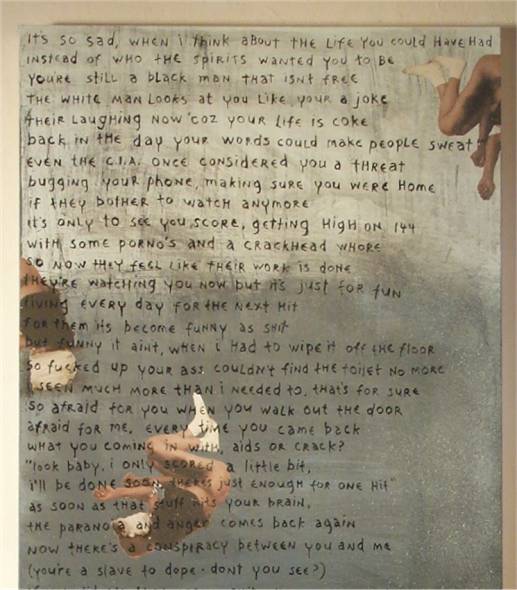 it's so sad, when i think about the life you could have had
instead of who the spirits wanted you to be
you're still a black man that isnt free
the white man looks at you like your a joke
their laughing now 'coz your life is coke
back in the day your words could make people sweat
even the C.I.A. once considered you a threat
bugging your phone, making sure you were home
if they bother to watch anymore
it's only to see you score, getting high on 144
with some porno's and a crackhead whore
so now they feel like their work is done
they're watching you now but it's just for fun
living every day for the next hit
for them its become funny as shit
but funny it aint, when i had to wipe it off the floor
so fucked up your ass couldn't find the toilet no more
i seen much more than i needed to, that's for sure
so afraid for you when you walk out the door
afraid for me, every time you came back
what you coming in with, aids or crack?
"look baby, i only scored a little bit,
i'll be done soon, theres just enough for one hit"
as soon as that stuff hits your brain,
the paranoia and anger comes back again
now there's a conspiracy between you and me
(you're a slave to dope - dont you see?)